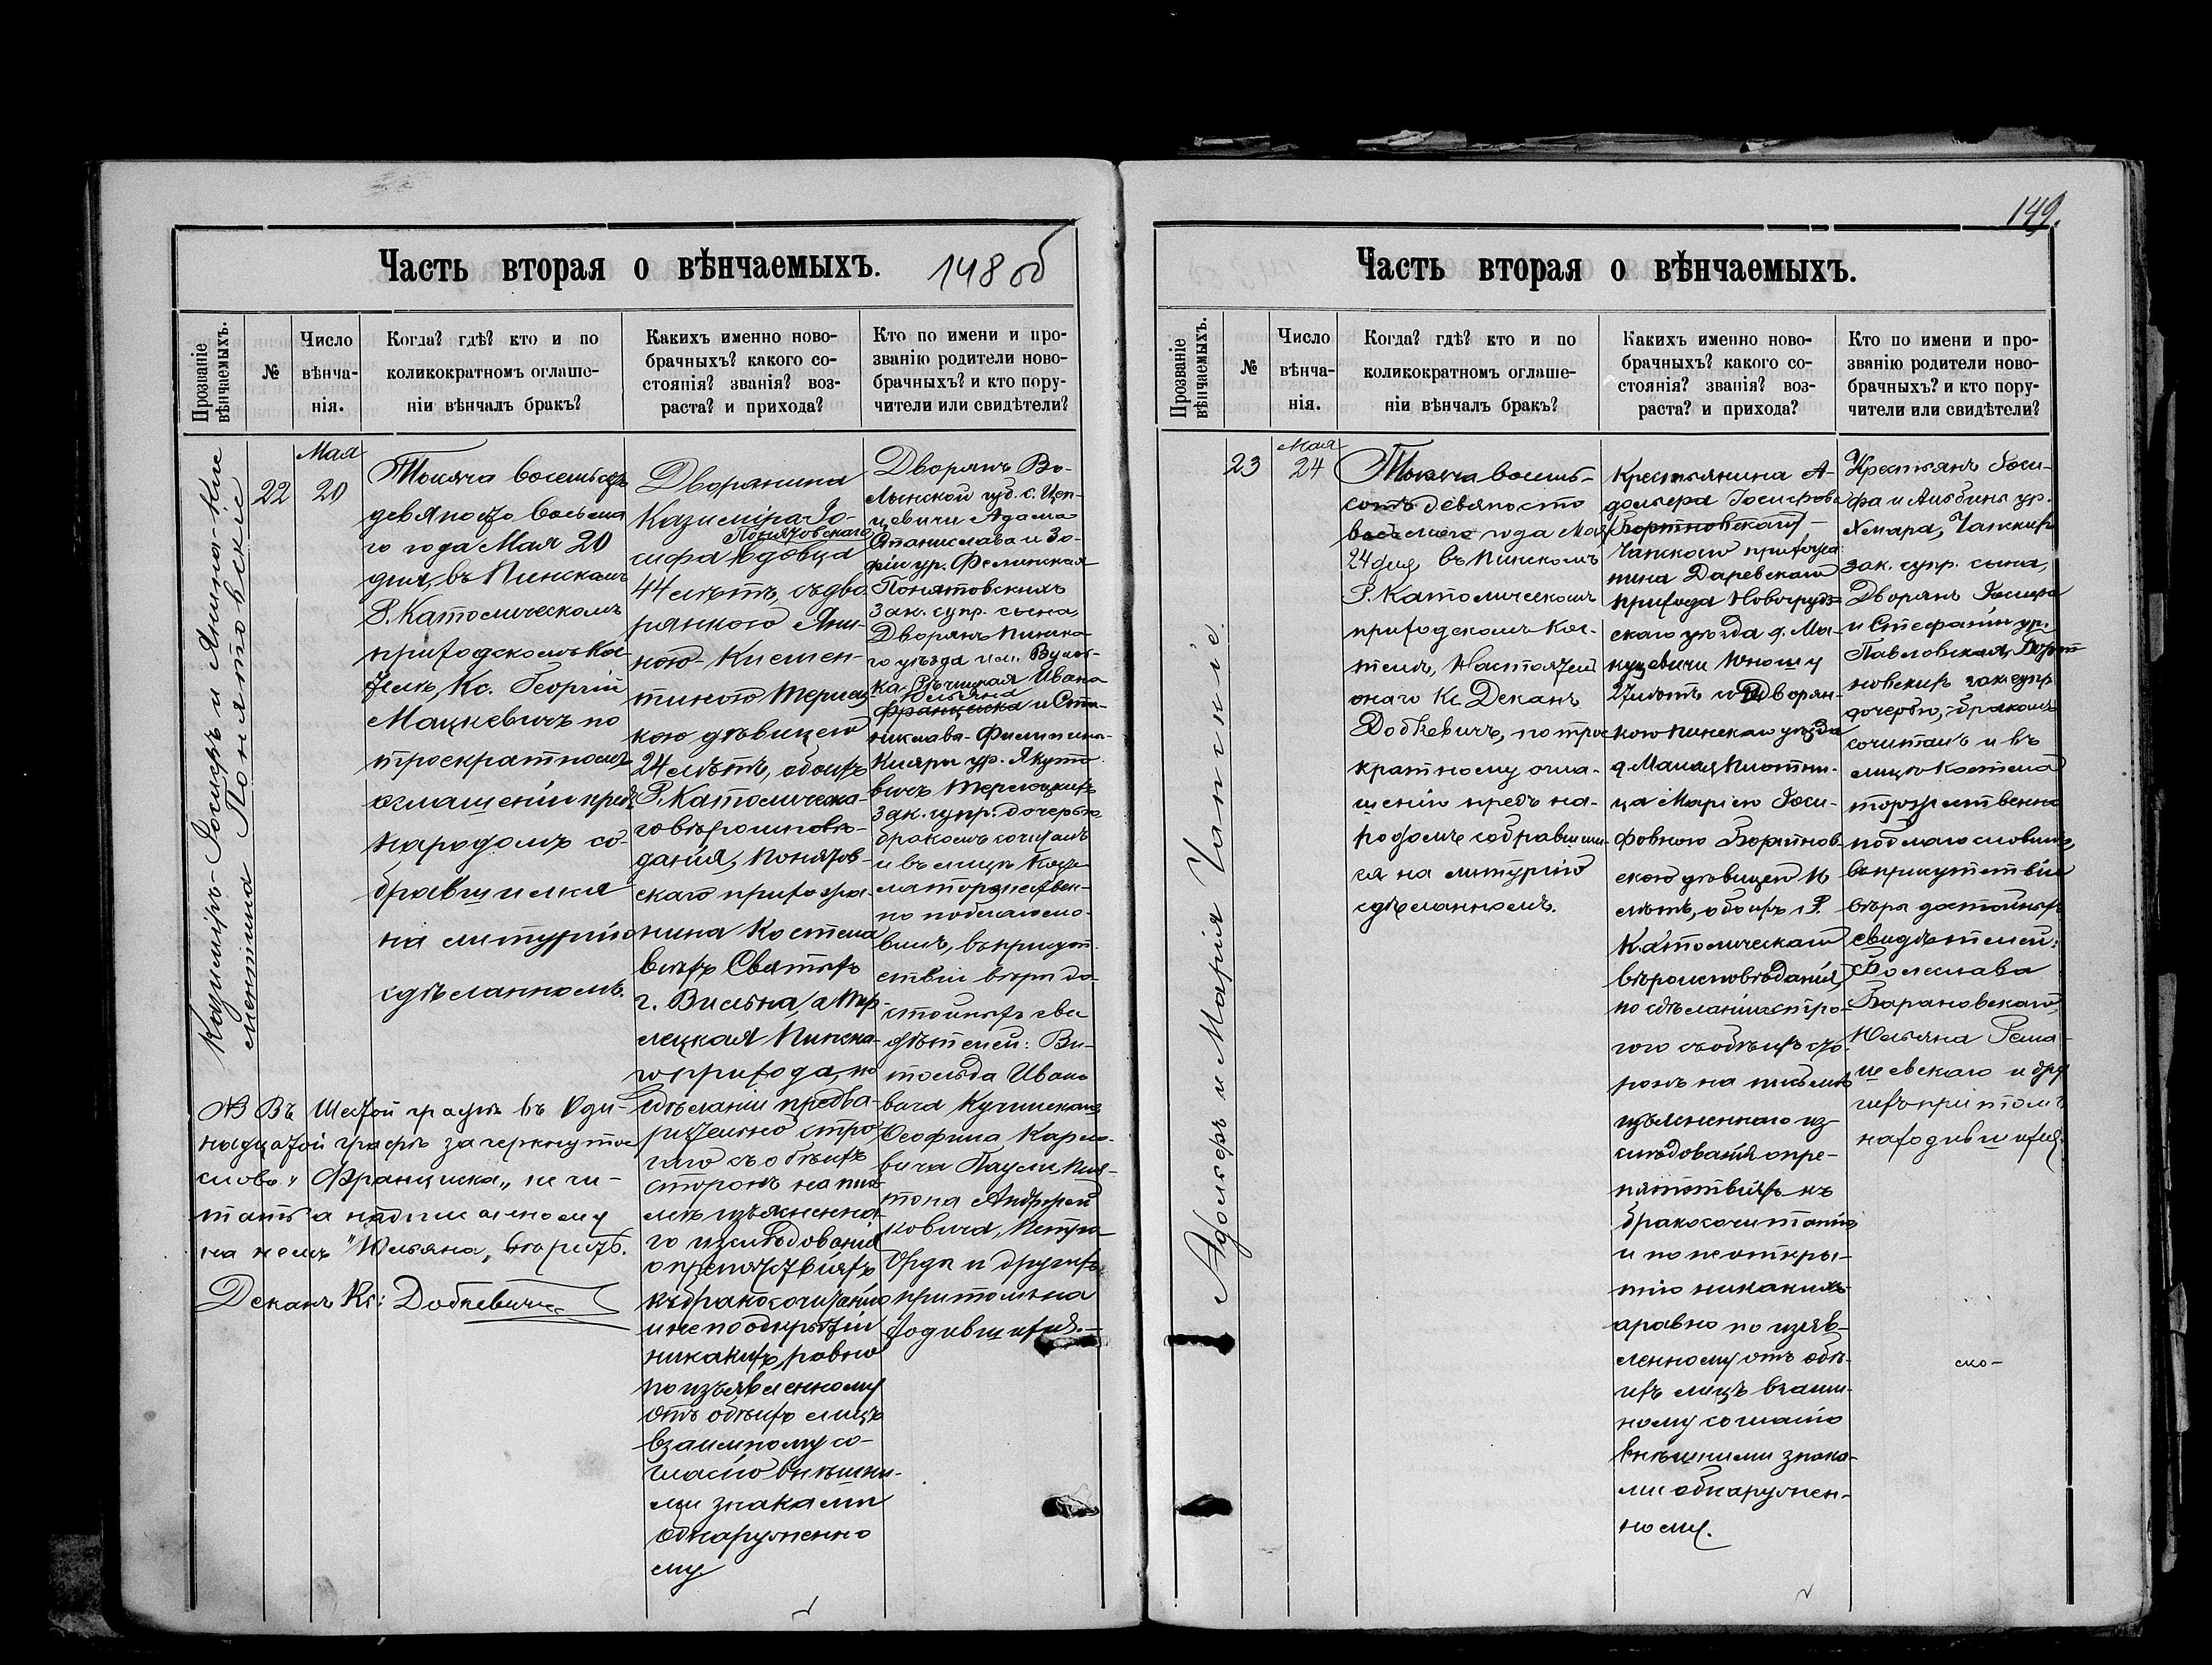 149.
Часть вторая о вѣнчаемыхъ. 148 об
Прозваніе вѣнчаемыхъ.
№
Число вѣнча-
нія.
Когда? гдѣ? кто и по
коликократномъ оглаше-
ніи вѣнчалъ бракъ?
Какихъ именно ново-
брачныхъ? какого со-
стоянія? званія? воз-
раста? и прихода?
Кто по имени и про-
званію родители ново-
брачныхъ? и кто пору-
чители или свидѣтели?
Казиміръ-Іосифъ и Янина-Кле
ментина Понятовскіе
22
Мая
20
Тысяча восемьсотъ
девяносто восьма
го года Мая 20
дня, въ Пинскомъ
Р. Католическомъ
приходскомъ Ко-
стелѣ, Кс. Георгій
Мацкевичъ по
троекратномъ
оглашеніи предъ
народомъ со-
бравшимся
на литургію
сдѣланномъ.
Дворянина
Казиміра-Іо-
Понятовскаго
сифа вдовца
44 лѣтъ, съ дво
рянкою Яни-
ною-Клемен-
тиною Терлец
кою дѣвицею
24 лѣтъ, обоихъ
Р. Католическа-
го вѣроисповѣ-
данія, Понятов-
скаго прихожа-
нина Костела
всѣхъ Святыхъ
г. Вильна, а Тер-
лецкая Пинска-
го прихода, по
сдѣланіи предва-
рительно стро
гаго съ обѣихъ
сторонъ на пись
мѣ изъясненна-
го изслѣдованія
о препятствіяхъ
къ бракосочетанію
и неподкрытіи
никакихъ, равно
по изъявленному
отъ обѣихъ лицъ
взаимному со-
гласію внѣшни-
ми знаками
обнаруженно
му.
Дворянъ Во-
лынской губ. с. Цеп-
цевичи Адама-
Станислава и Зо-
фіи ур. Фелинская
Понятовскихъ
зак. супр. сына,
Дворянъ Пинска
го уѣзда им. Вулъ-
ка-Рѣчицкая Ивана
Юльяна
Франциска и Ста-
нислава-Филипина-
Кляры ур. Якуто
вичъ Терлецкихъ
зак. супр. дочерью
бракомъ сочеталъ
и въ лицѣ Косте-
ла торжествен-
но поблагосло-
вилъ, въ присут-
ствіи вѣры до-
стойныхъ сви
дѣтелей: Ви-
тольда Ивано
вича Кучинскаго
Ѳеофила Карло-
вича Баули, Пля-
тона Андржей
ковича, Петра
Орды и другихъ
при томъ на
ходившихся.—
NB Въ Шестой графѣ въ Оди-
надцатой графѣ зачеркнутое
слово "Франциска" не чи-
тать а надписанному
на немъ "Юльяна" вѣрить.
Деканъ Кс: Добкевичъ
Часть вторая о вѣнчаемыхъ.
Прозваніе вѣнчаемыхъ.
№
Число вѣнча-
нія.
Когда? гдѣ? кто и по
коликократномъ оглаше-
ніи вѣнчалъ бракъ?
Какихъ именно ново-
брачныхъ? какого со-
стоянія? званія? воз-
раста? и прихода?
Кто по имени и про-
званію родители ново-
брачныхъ? и кто пору-
чители или свидѣтели?
Адольфъ и Марія Чапскіе.
23
Мая
24
Тысяча восемь-
сотъ девяносто
восьмого года Мая
24 дня въ Пинскомъ
Р. Католическомъ
приходскомъ Кос-
телѣ, Настоятель
онаго Кс. Деканъ
Добкевичъ, по трое
кратному огла-
шенію предъ на-
родомъ собравшим-
ся на литургію
сдѣланномъ.
Крестьянина А-
дольфа Іосифова
Бортновскаго —
Чапскаго прихожа
нина Даревскаго
прихода Новогруд-
скаго уѣзда д. Ма-
куцевичи юношу
27 лѣтъ и Дворян-
кою Пинскаго уѣзда
д. Малая Плотни-
ца Марію Іоси-
фовною Бортнов-
скою дѣвицею
лѣтъ, обоихъ Р.
Католическаго
вѣроисповѣданія,
по сдѣланіи стро-
гого съ обѣихъ сто-
ронъ на письмѣ
изъясненнаго из-
слѣдованія о пре-
пятствіяхъ къ
бракосочетанію
и по неоткры-
тію никакихъ
а равно по изъяв-
ленному отъ обѣ-
ихъ лицъ взаим-
ному согласію
внѣшними знака-
ми обнаружен-
ному.
Крестьянъ Іоси-
фа и Альбины ур.
Хмара, Чапскихъ
зак. супр. сына,
Дворянъ Іосифа
и Стефаніи ур.
Павловская, Борт
новскихъ зак. супр
дочерью, бракомъ
сочеталъ и въ
лицѣ Костела
торжественно
поблагословилъ,
въ присутствіи
вѣры достойныхъ
свидѣтелей:
Болеслава
Барановскаго
Юльяна Рома-
шевскаго и дру
гихъ при томъ
находившихся.